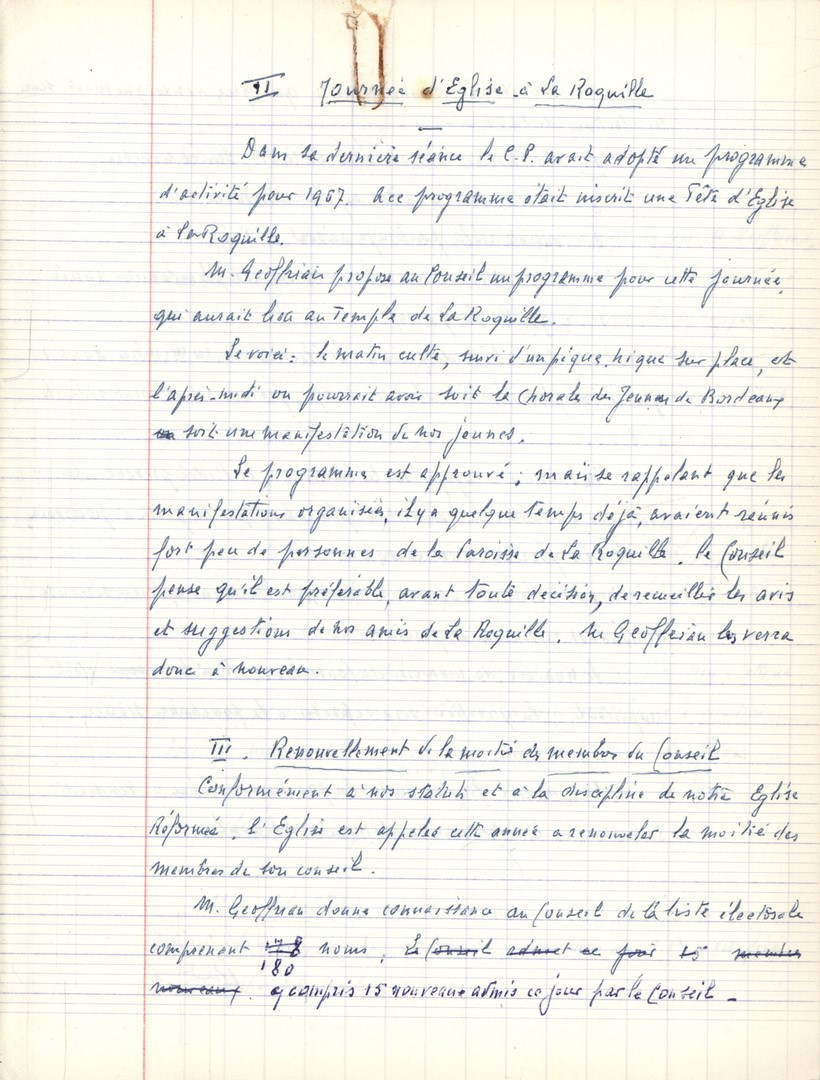 II Journée d'Eglise à La Roquille
Dans sa dernière séance le C.P. avait adopté un programme
d'activité pour 1967. A ce programme était inscrit une Fête d'Eglise
à La Roquille.
M. Geoffrian propose au Conseil un programme pour cette journée,
qui aurait lieu au Temple de La Roquille.
Le voici : le matin culte, suivi d'un pique-nique sur place, et
l'après-midi on pourrait avoir soit la Chorale des Jeunes de Bordeaux
soit une manifestation de nos jeunes.
Le programme est approuvé ; mais se rappelant que les
manifestations organisées, il y a quelque temps déjà, avaient réunis
fort peu de personnes de la Paroisse de La Roquille. le Conseil
pense qu'il est préférable, avant toute décision, de recueillir les avis
et suggestions de nos amis de La Roquille. M. Geoffrian les verra
donc à nouveau.
III. Renouvellement de la moitié des membres du Conseil
Conformément à nos statuts et à la discipline de notre Eglise
Réformée, l'Eglise est appelée cette année a renouveler la moitié des
membres de son conseil.
M. Geoffrian donne connaissance au Conseil de la liste électorale
comprenant noms. Le Conseil admet ce jour 15 membres
180
nouveaux. y compris 15 nouveaux admis ce jour par le Conseil -